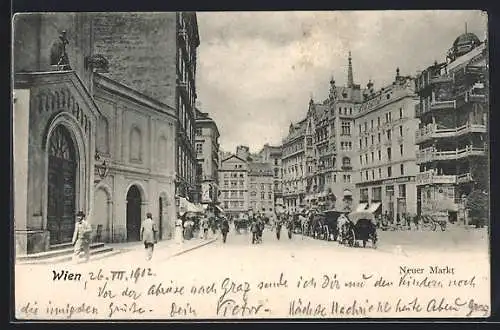 Wien, 26. VII. 1902
Neuer Markt
Vor der Abreise nach Graz sende ich Dir und den Kindern noch
die innigsten Grüsse. Dein Victor. Nächste Nachricht heute Abend Graz